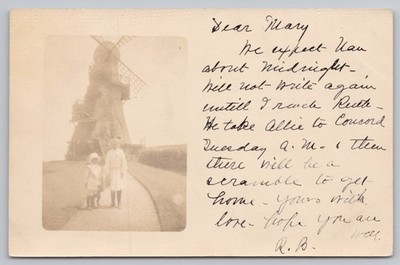 Dear Mary
We expect Nan
about Midnight-
Will not write again
untill I reach
We take Allie to Concord
Tuesday A.M. & then
there will be a
scramble to get
home - yours with
love - hope you are
well.
R. B.